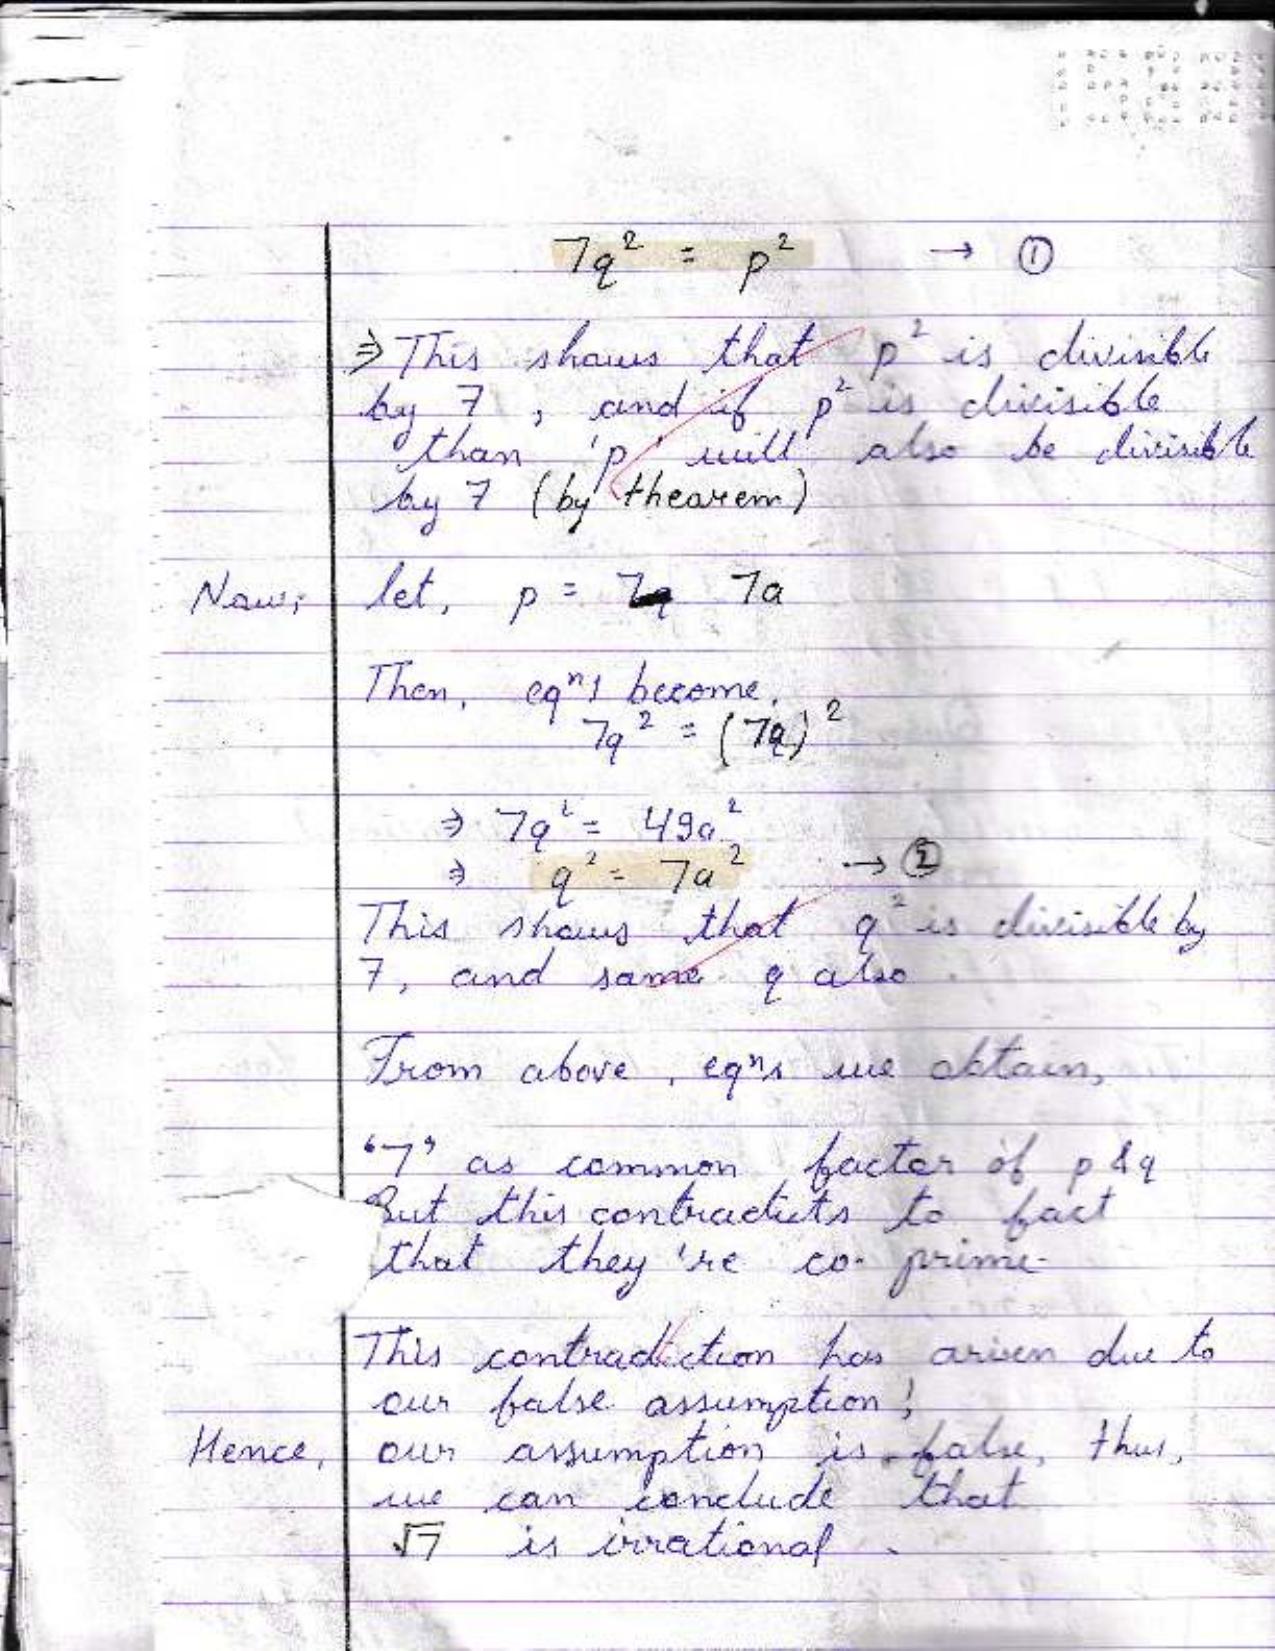 7q² = p² → ①
⇒ This shows that p² is divisible
by 7, and if p² is divisible
than 'p' will also be divisible
by 7 (by thearem)
Now, let, p = 7a
Then, eqⁿ 1 become,
7q² = (7a)²
⇒ 7q² = 49a²
⇒ q² = 7a² → ②
This shows that q² is divisible by
7, and same q also.
From above, eqⁿs we obtain,
"7" as common factor of p & q
But this contradicts to fact
that they're co-prime
This contradiction has arisen due to
our false assumption;
Hence, our assumption is false, thus,
we can conclude that
√7 is irrational.